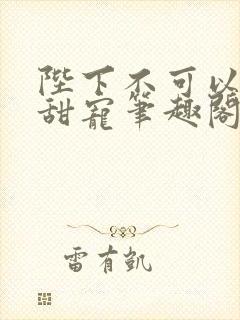 陛下不可以
甜寵筆趣閣
雷有凱